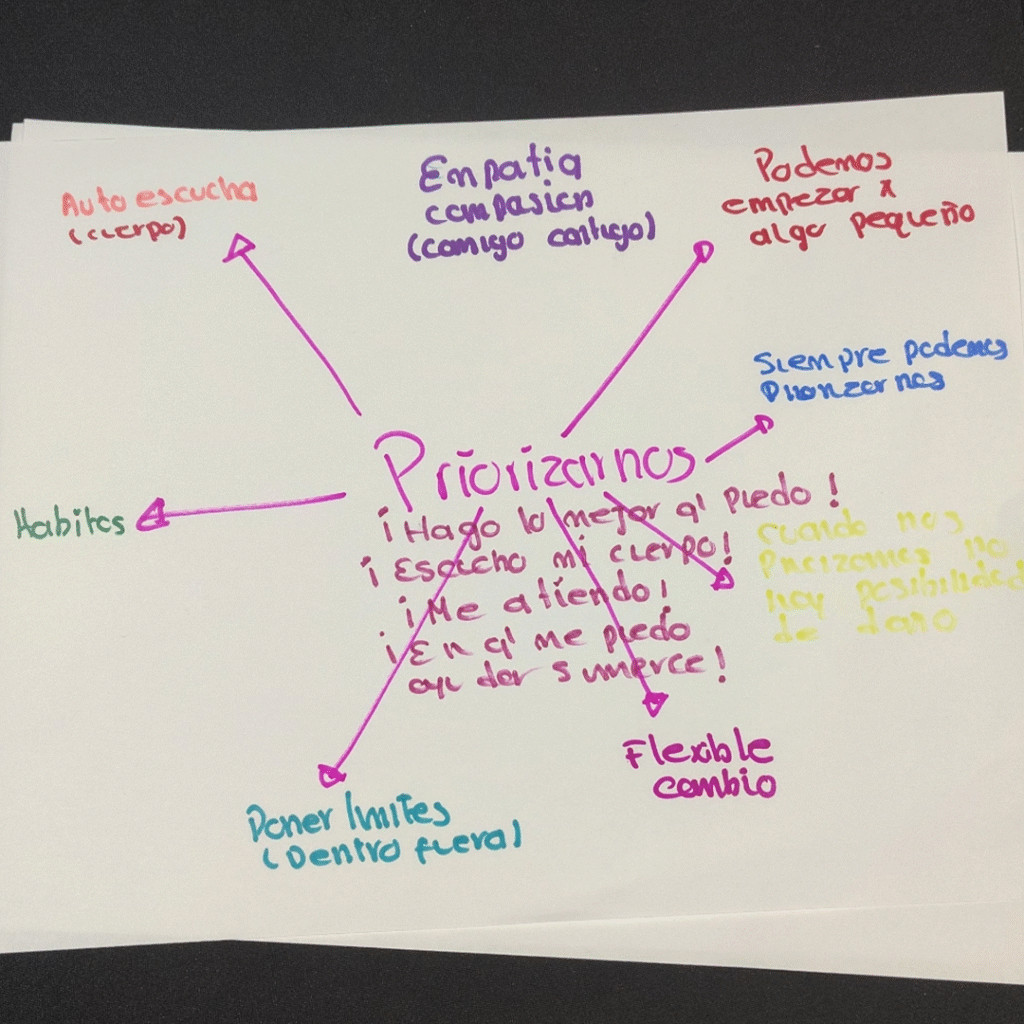 Auto escucha
(cuerpo)
Empatia
compasion
(comigo contigo)
Podemos
empezar x
algo pequeño
Siempre podemos
Priorizarnos
Priorizarnos
¡Hago lo mejor q' puedo!
¡Escucho mi cuerpo!
¡Me atiendo!
¡En q' me puedo
ayudar sumerce!
Habitos
cuando nos
priorizamos no
hay posibilidad
de daño
Flexible
cambio
Poner limites
(Dentro fuera)